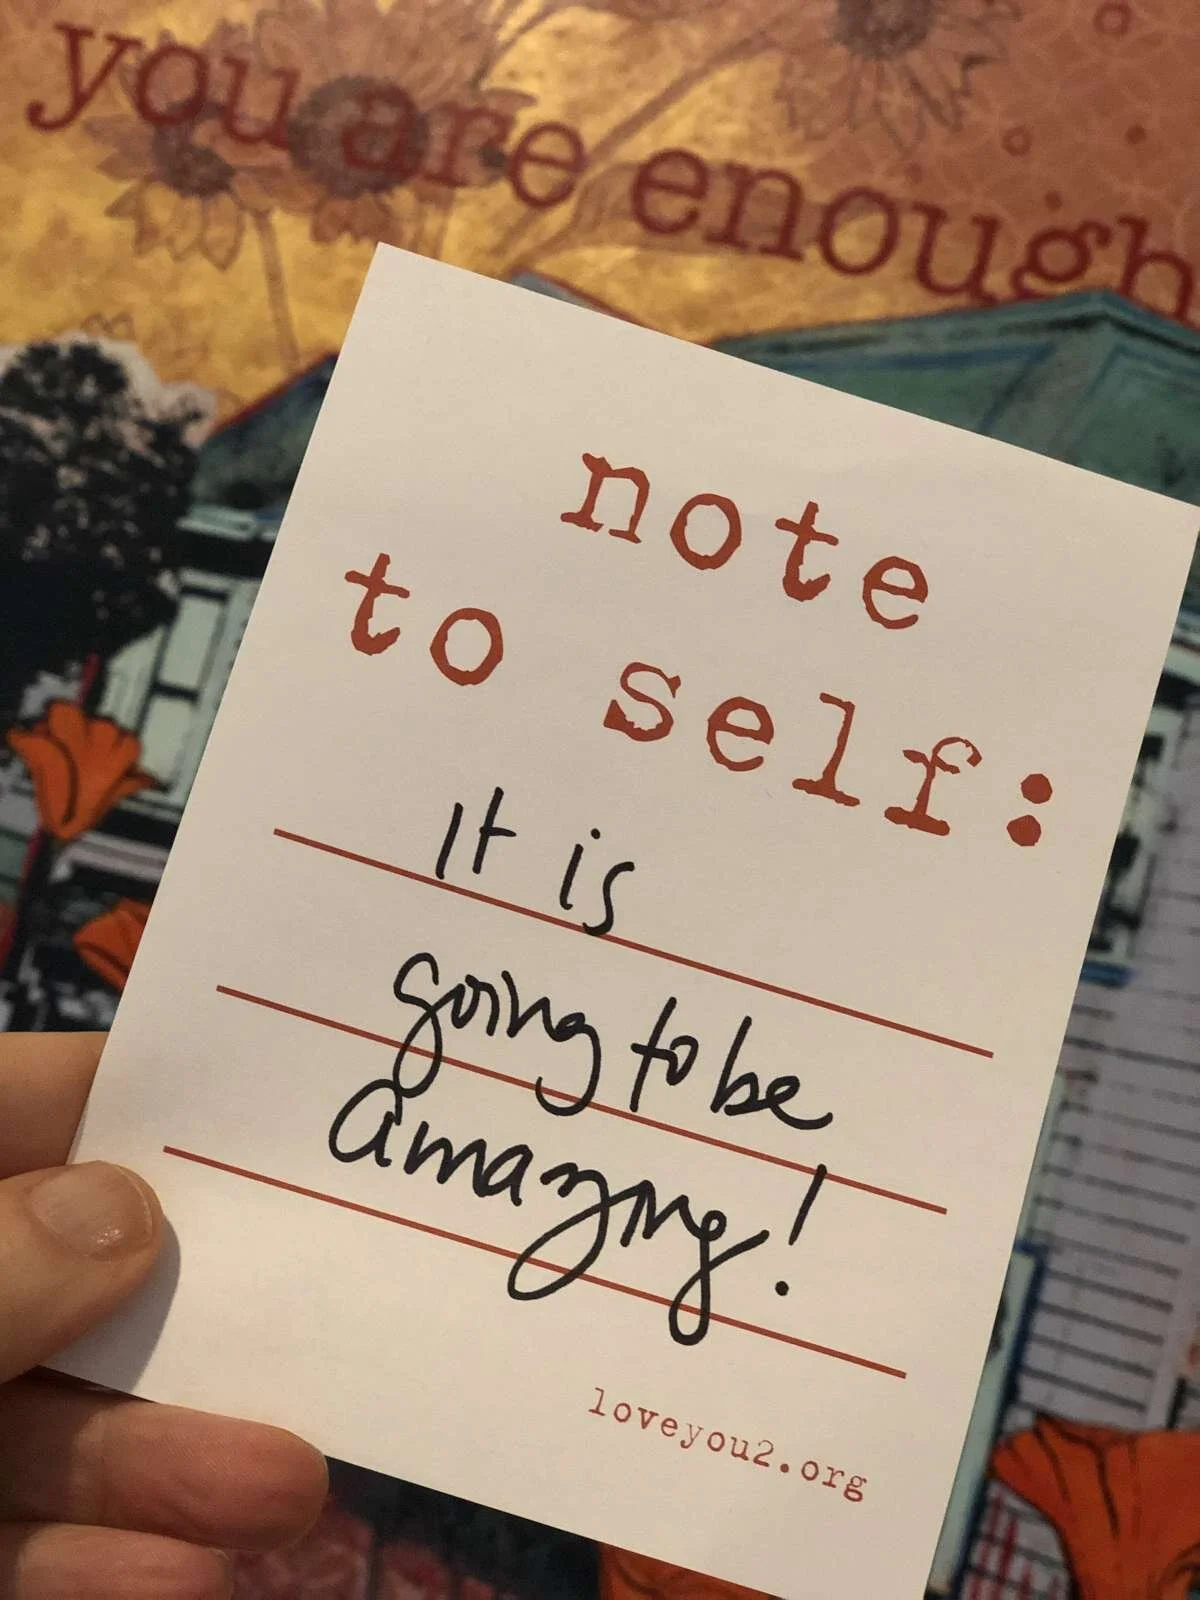 you are enough
note
to self:
It is
going to be
amazing!
loveyou2.org